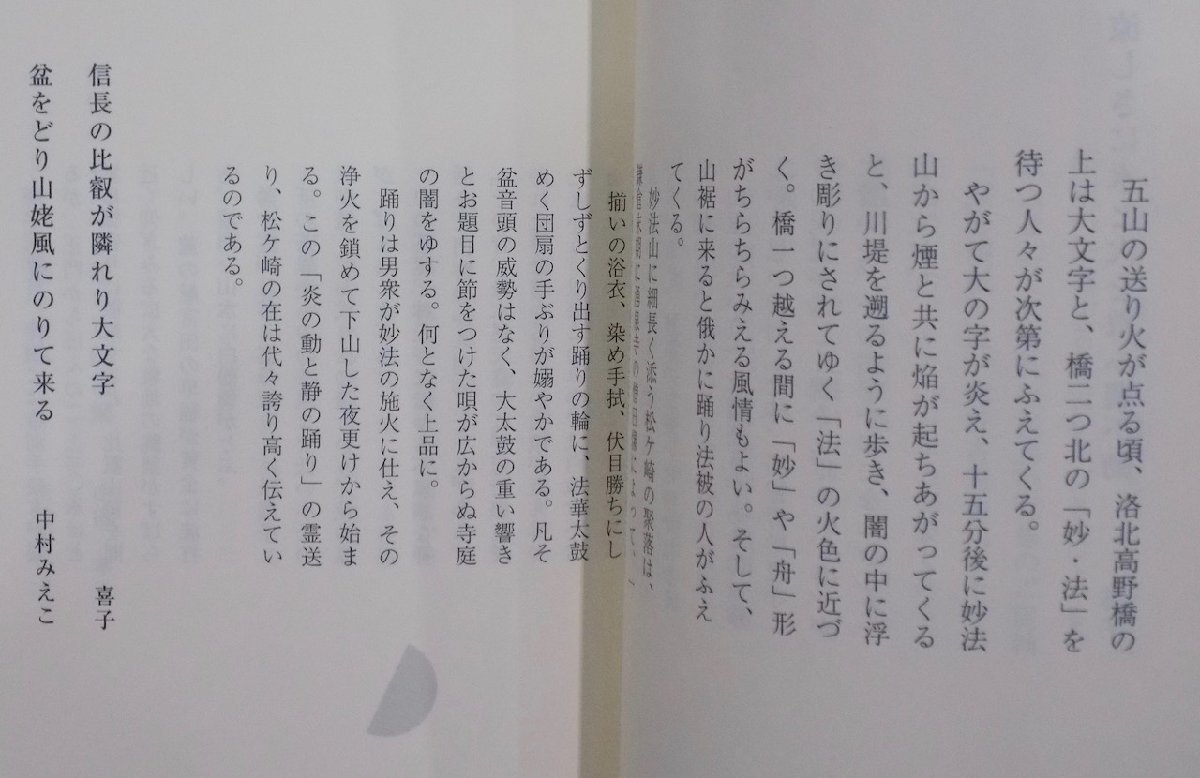 五山の送り火が点る頃、洛北高野橋の
上は大文字と、橋二つ北の「妙・法」を
待つ人々が次第にふえてくる。
やがて大の字が炎え、十五分後に妙法
山から煙と共に焔が起ちあがってくる
と、川堤を遡るように歩き、闇の中に浮
き彫りにされてゆく「法」の火色に近づ
く。橋一つ越える間に「妙」や「舟」形
がちらちらみえる風情もよい。そして、
山裾に来ると俄かに踊り法被の人がふえ
てくる。
妙法山に細長く添う松ケ崎の聚落は、
揃いの浴衣、染め手拭、伏目勝ちにし
ずしずとくり出す踊りの輪に、法華太鼓
めく団扇の手ぶりが嫋やかである。凡そ
盆音頭の威勢はなく、大太鼓の重い響き
とお題目に節をつけた唄が広からぬ寺庭
の闇をゆする。何となく上品に。
踊りは男衆が妙法の施火に仕え、その
浄火を鎮めて下山した夜更けから始ま
る。この「炎の動と静の踊り」の霊送
り、松ケ崎の在は代々誇り高く伝えてい
るのである。
信長の比叡が隣れり大文字 喜子
盆をどり山姥風にのりて来る 中村みえこ